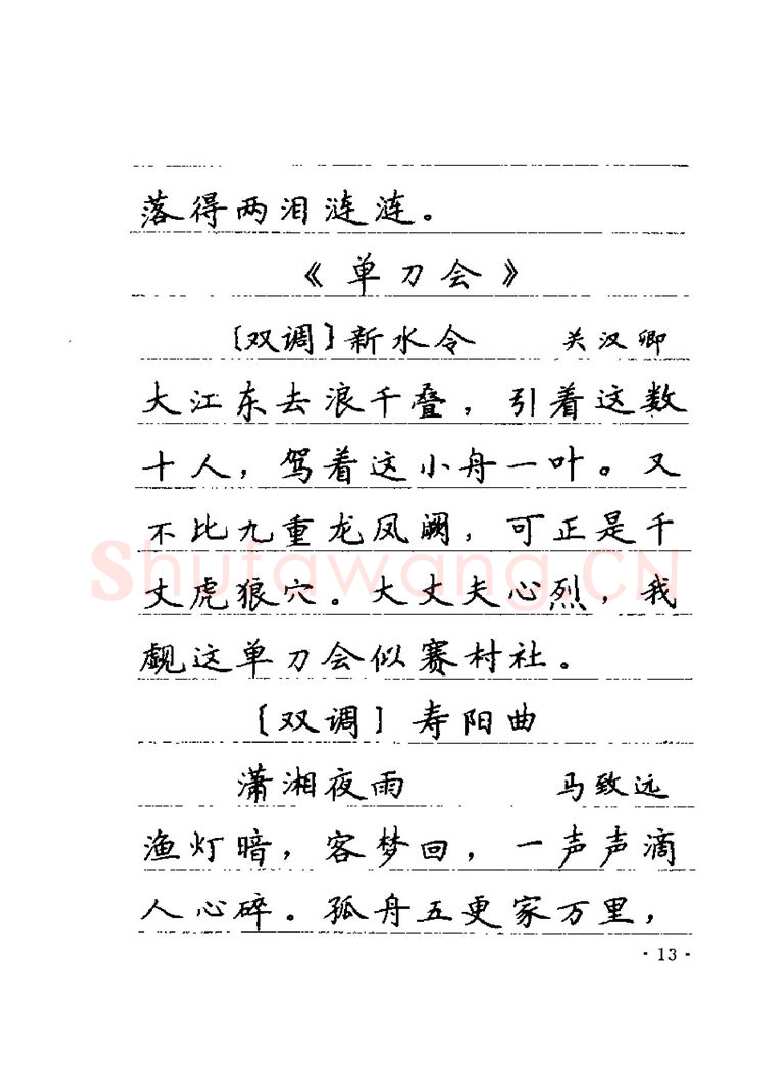 落得两泪涟涟。
《单刀会》
〔双调〕新水令 关汉卿
大江东去浪千叠，引着这数
十人，驾着这小舟一叶。又
不比九重龙凤阙，可正是千
丈虎狼穴。大丈夫心烈，我
觑这单刀会似赛村社。
〔双调〕寿阳曲
潇湘夜雨 马致远
渔灯暗，客梦回，一声声滴
人心碎。孤舟五更家万里，
·13·
Shufawang.CN